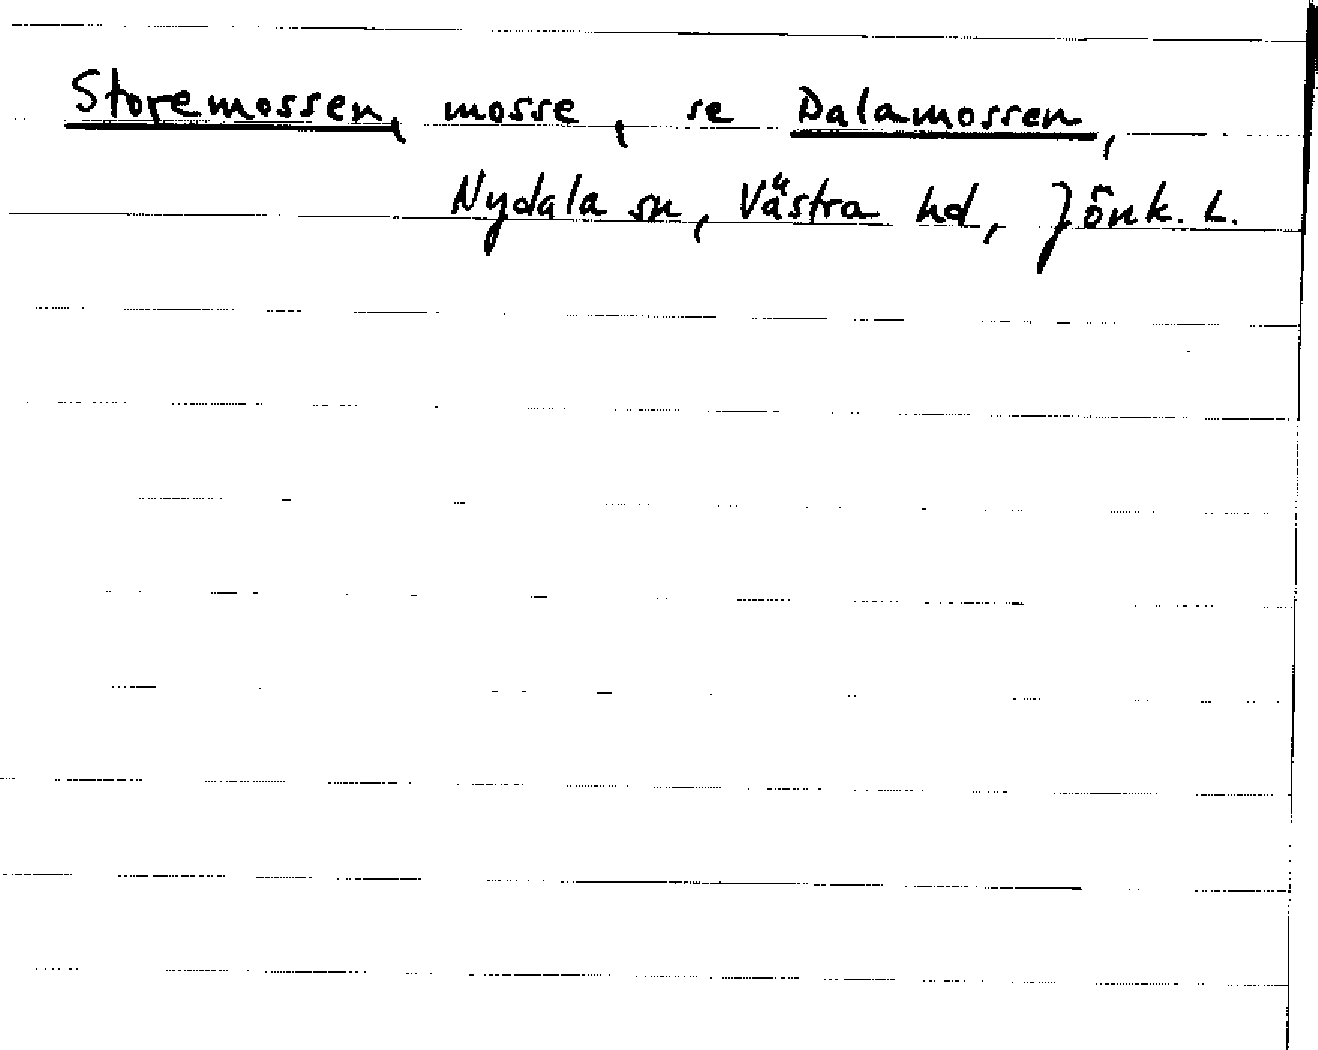 Storemossen, mosse, se Dalamossen,
Nydala sn, Västra hd, Jönk. L.